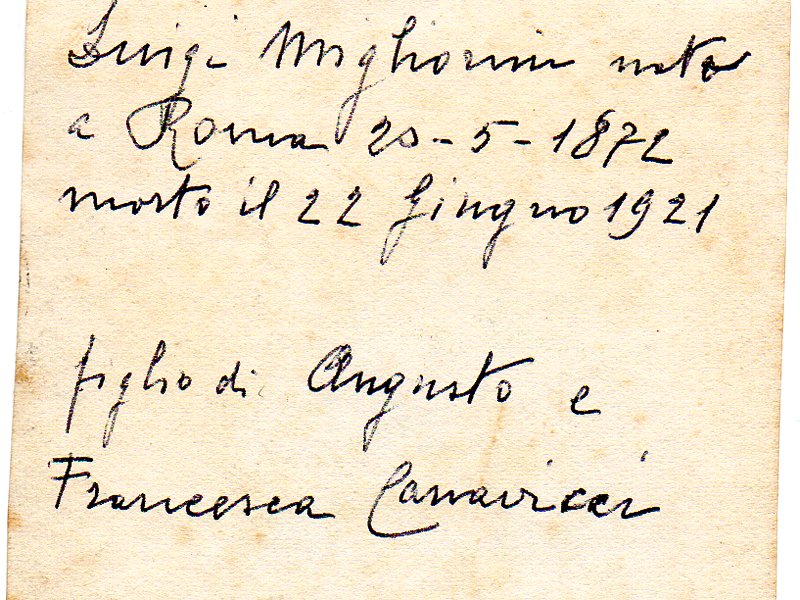 Luigi Migliorini nato
a Roma 20-5-1872
morto il 22 Giugno 1921
figlio di Augusto e
Francesca